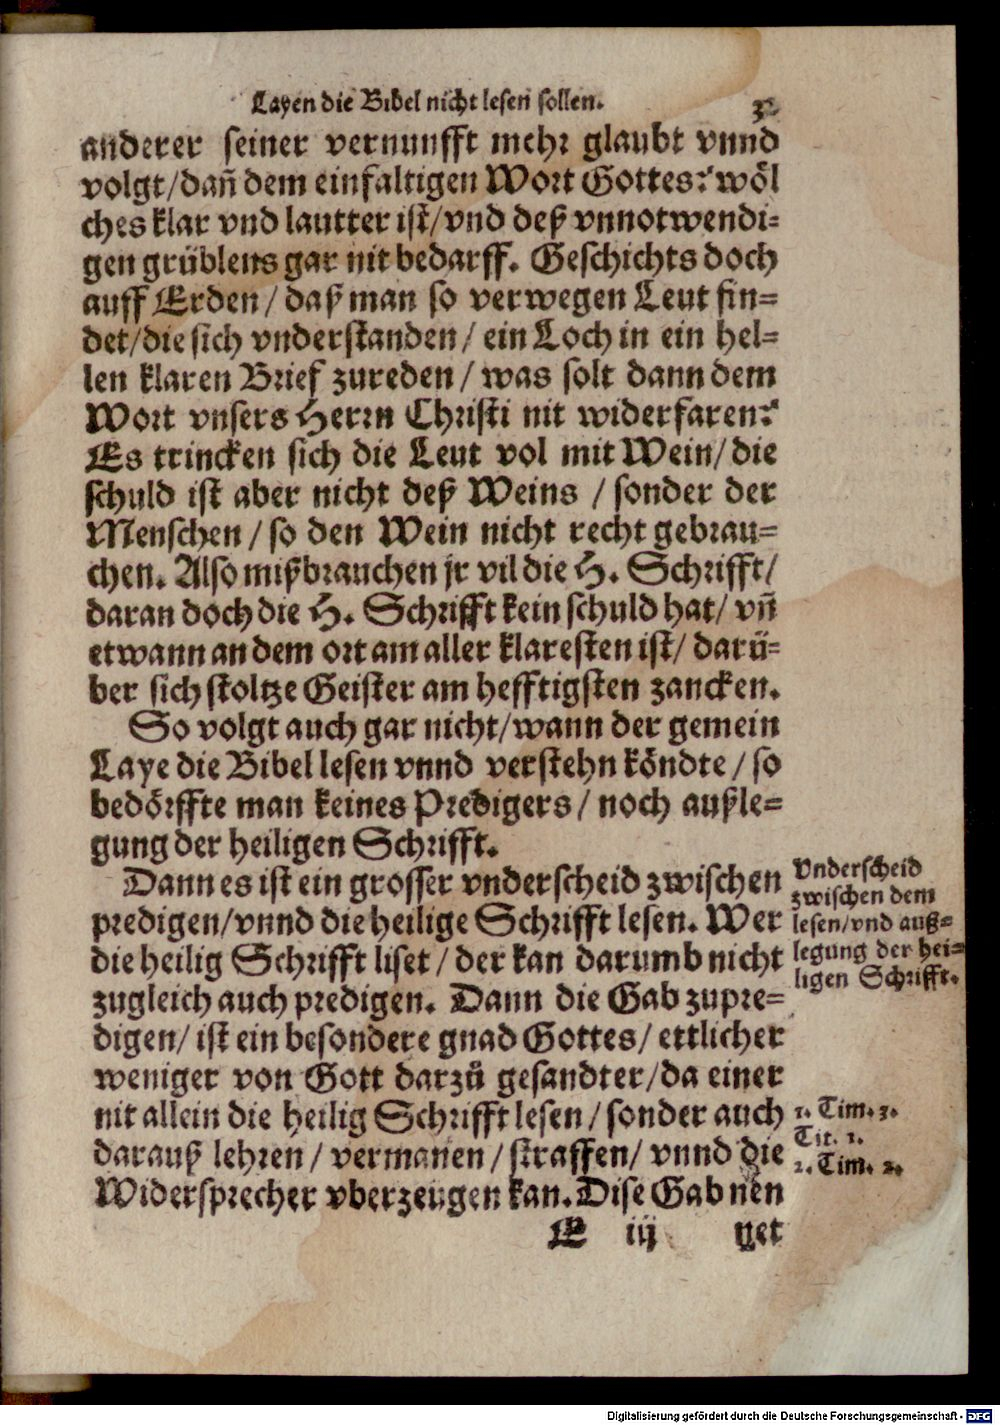 Layen die Bibel nicht lesen sollen.
anderer seiner vernunfft mehr glaubt vnnd
volgt/dañ dem einfaltigen Wort Gottes? wöl
ches klar vnd lautter ist/vnd deß vnnotwendi-
gen grüblens gar nit bedarff. Geschichts doch
auff Erden/ daß man so verwegen Leut fin-
det/die sich vnderstanden/ ein Loch in ein hel-
len klaren Brief zureden/ was solt dann dem
Wort vnsers Herrn Christi nit widerfaren?
Es trincken sich die Leut vol mit Wein/ die
schuld ist aber nicht deß Weins / sonder der
Menschen/ so den Wein nicht recht gebrau-
chen. Also mißbrauchen jr vil die H. Schrifft/
daran doch die H. Schrifft kein schuld hat/ vñ
etwann an dem ort am aller klaresten ist/ darü-
ber sich stoltze Geister am hefftigsten zancken.
So volgt auch gar nicht/wann der gemein
Laye die Bibel lesen vnnd verstehn köndte/ so
bedörffte man keines Predigers/ noch außle-
gung der heiligen Schrifft.
Dann es ist ein grosser vnderscheid zwischen
predigen/vnnd die heilige Schrifft lesen. Wer
die heilig Schrifft liset/ der kan darumb nicht
zugleich auch predigen. Dann die Gab zupre-
digen/ ist ein besondere gnad Gottes/ ettlicher
weniger von Gott darzů gesandter/da einer
nit allein die heilig Schrifft lesen/sonder auch
darauß lehren/ vermanen/ straffen/ vnnd die
Widersprecher vberzeugen kan. Dise Gab nen
E iij net
Vnderscheid
zwischen dem
lesen/vnd auß-
legung der hei-
ligen Schrifft.
1. Tim. 3.
Tit. 1.
2. Tim. 2.
Digitalisierung gefördert durch die Deutsche Forschungsgemeinschaft - DFG